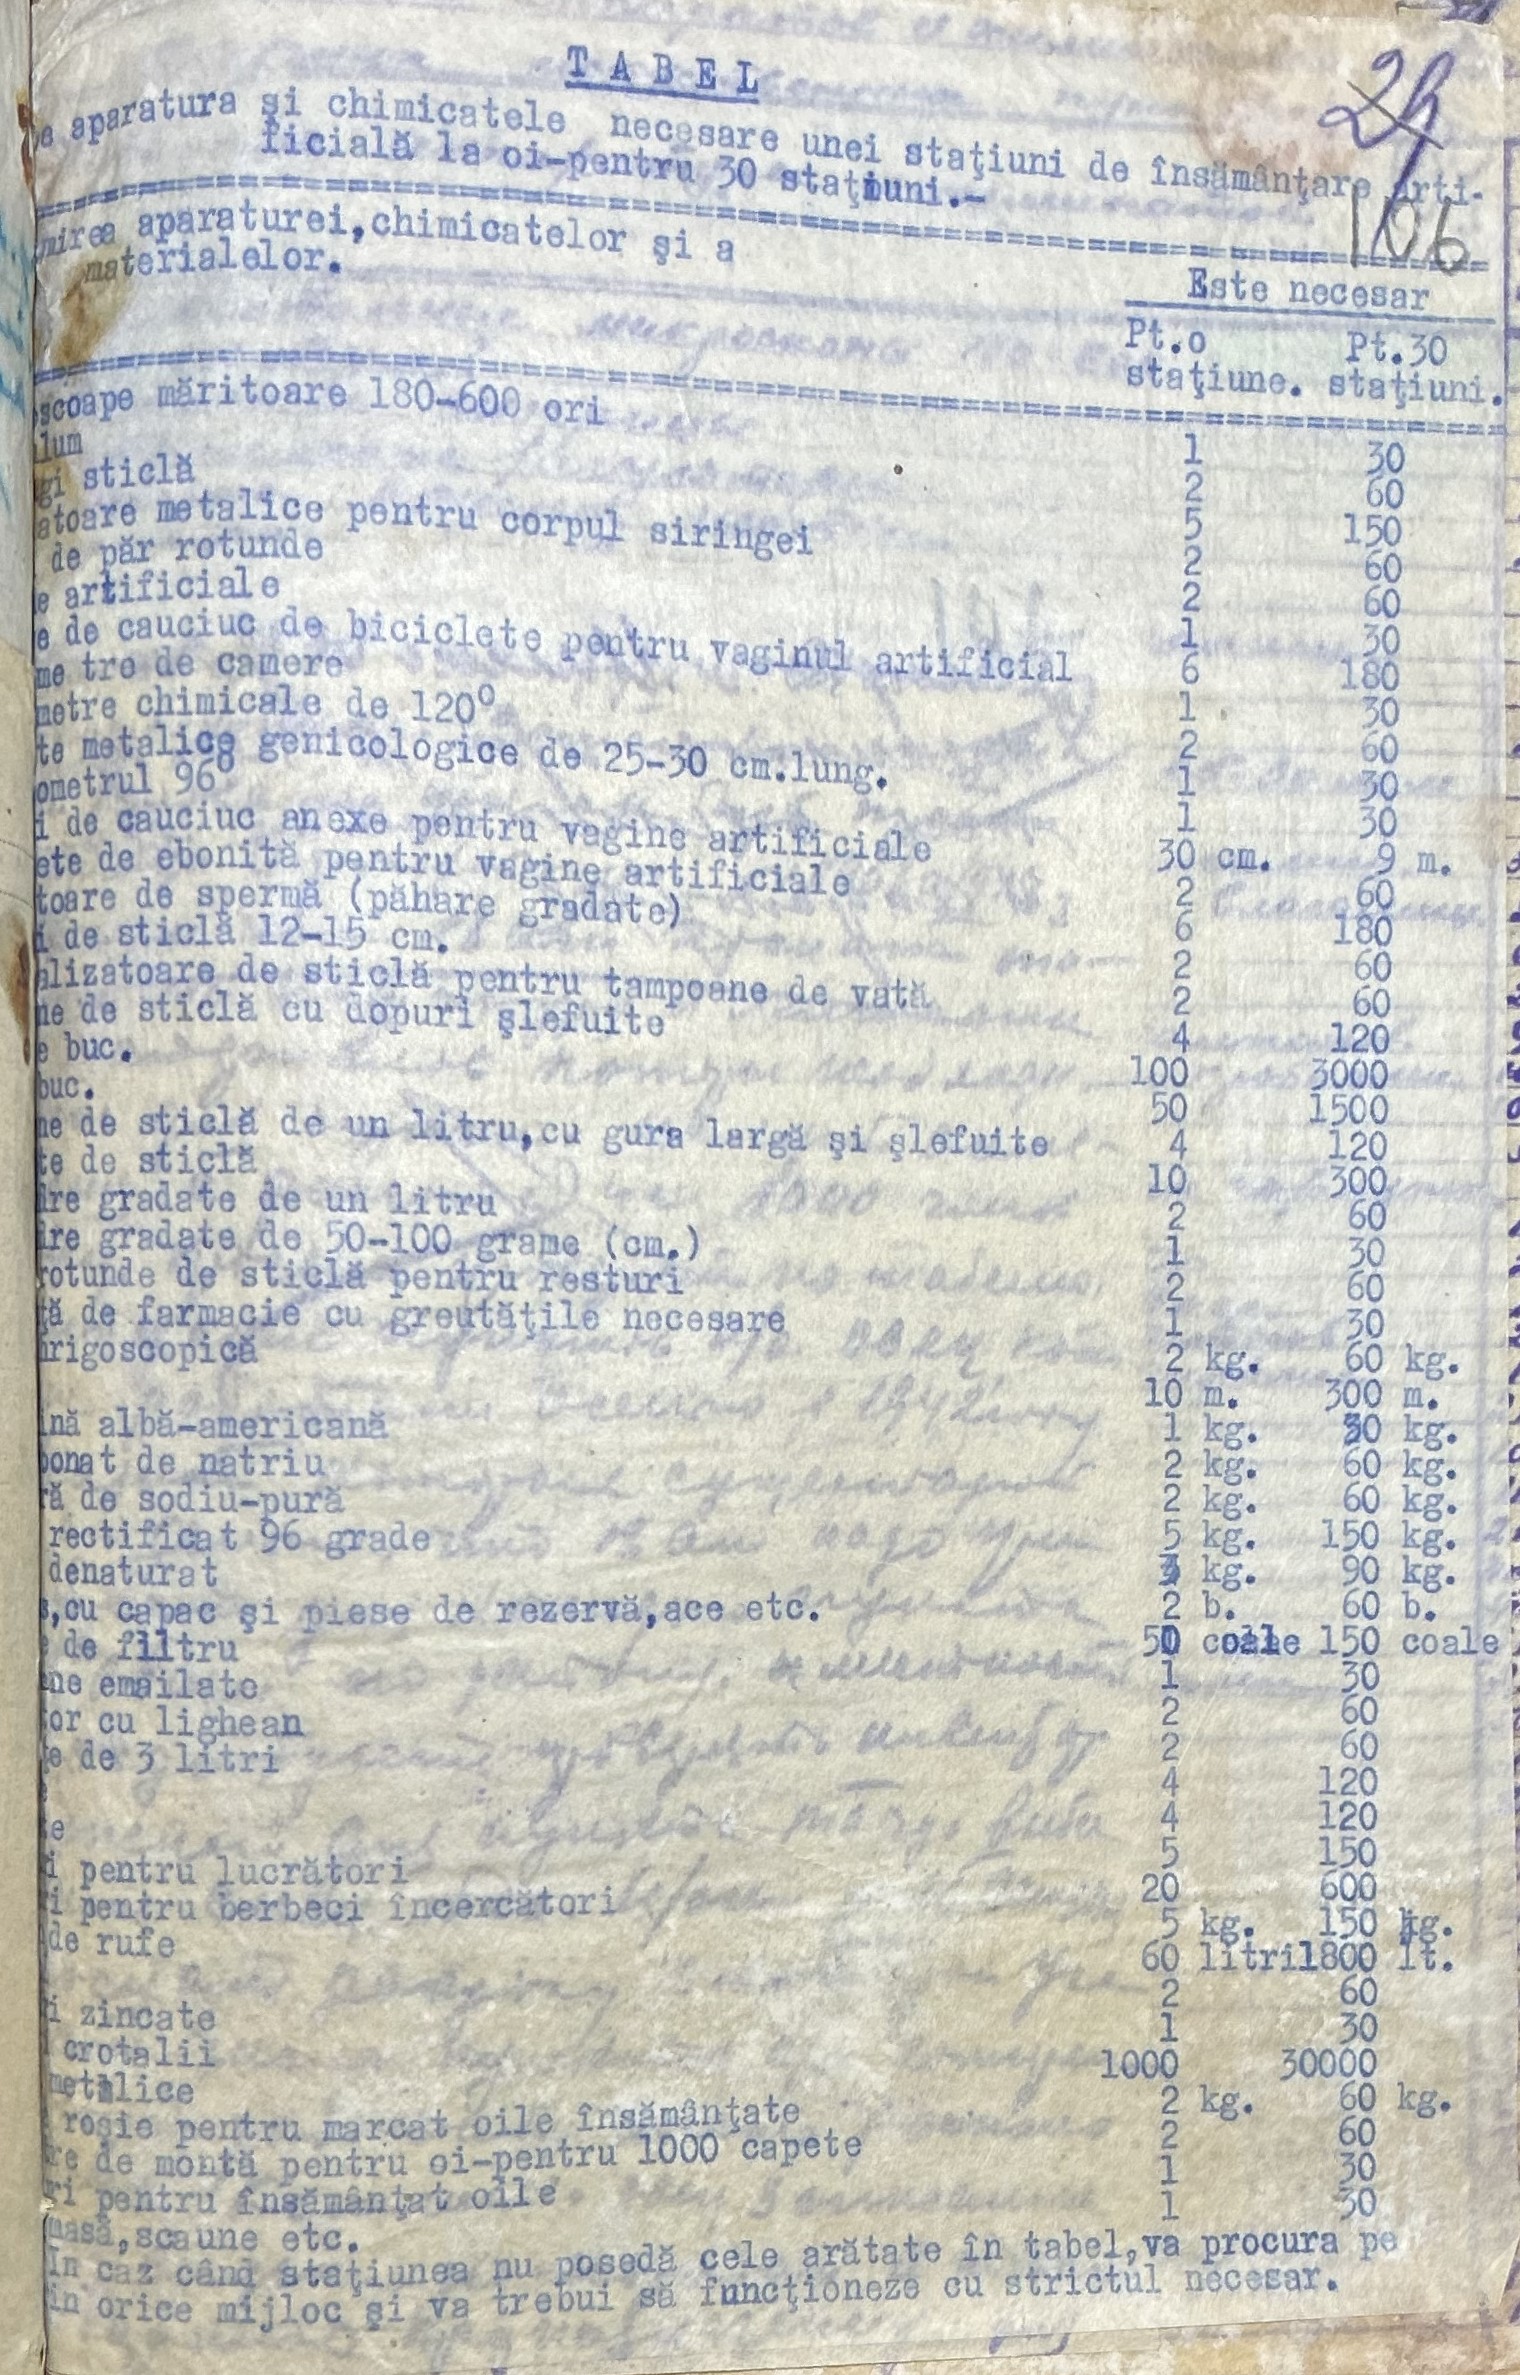 TABEL
aparatura şi chimicatele necesare unei staţiuni de însămânţare arti-
ficială la oi-pentru 30 staţiuni.-
29
106
mirea aparaturei,chimicatelor şi a
materialelor.
Este necesar
Pt.o Pt.30
staţiune. staţiuni.
scoape măritoare 180-600 ori 1 30
lum 2 60
gi sticlă 5 150
atoare metalice pentru corpul siringei 2 60
de păr rotunde 2 60
e artificiale 1 30
e de cauciuc de biciclete pentru vaginul artificial 6 180
me tre de camere 1 30
metre chimicale de 120° 2 60
te metalice genicologice de 25-30 cm.lung. 1 30
ometrul 96° 1 30
i de cauciuc anexe pentru vagine artificiale 30 cm. 9 m.
ete de ebonită pentru vagine artificiale 2 60
toare de spermă (păhare gradate) 6 180
i de sticlă 12-15 cm. 2 60
lizatoare de sticlă pentru tampoane de vată 2 60
ne de sticlă cu dopuri şlefuite 4 120
e buc. 100 3000
buc. 50 1500
ne de sticlă de un litru,cu gura largă şi şlefuite 4 120
te de sticlă 10 300
dre gradate de un litru 2 60
dre gradate de 50-100 grame (cm.) 1 30
rotunde de sticlă pentru resturi 2 60
ţă de farmacie cu greutăţile necesare 1 30
hrigoscopică 2 kg. 60 kg.
10 m. 300 m.
ină albă-americană 1 kg. 30 kg.
bonat de natriu 2 kg. 60 kg.
ră de sodiu-pură 2 kg. 60 kg.
rectificat 96 grade 5 kg. 150 kg.
denaturat 3 kg. 90 kg.
s,cu capac şi piese de rezervă,ace etc. 2 b. 60 b.
de filtru 50 coale 150 coale
ne emailate 1 30
tor cu lighean 2 60
e de 3 litri 2 60
4 120
te 4 120
i pentru lucrători 5 150
i pentru berbeci încercători 20 600
de rufe 5 kg. 150 kg.
60 litri 1800 lt.
i zincate 2 60
crotalii 1 30
metalice 1000 30000
roşie pentru marcat oile însămânţate 2 kg. 60 kg.
re de montă pentru oi-pentru 1000 capete 2 60
ri pentru însămânţat oile 1 30
masă,scaune etc. 1 30
In caz când staţiunea nu posedă cele arătate în tabel,va procura pe
in orice mijloc şi va trebui să funcţioneze cu strictul necesar.